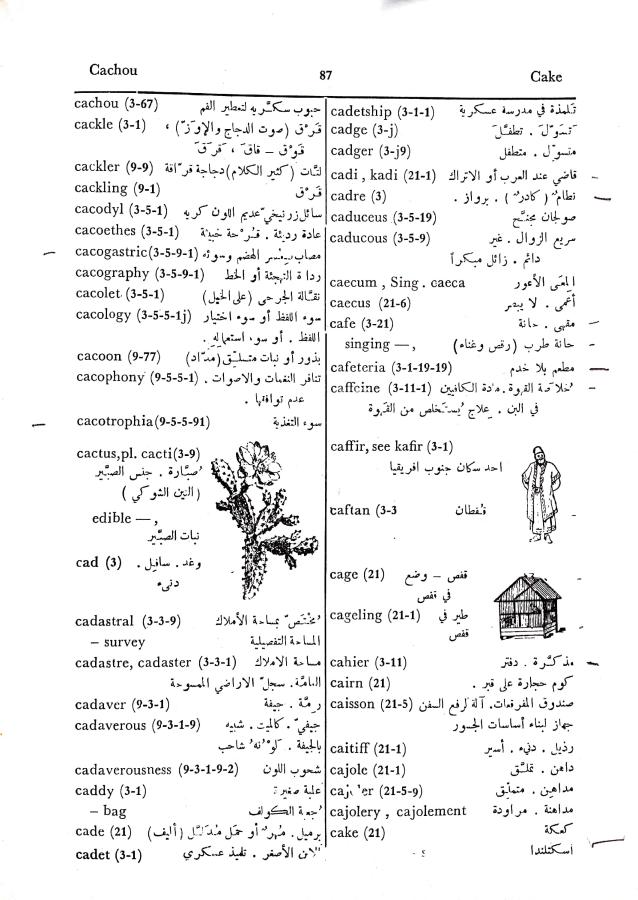 Cachou
87
Cake
cachou (3-67) حبوب سكَّريه لتعطير الفم
cackle (3-1) قَرْق (صوت الدجاج والإوَزّ) ،
قَوْق – قاقَ ، قَرَقَ
cackler (9-9) لتَّات (كثير الكلام) دجاجة قرّاقة
cackling (9-1) قَرْق
cacodyl (3-5-1) سائل زرنيخيّ عديم اللون كريه
cacoethes (3-5-1) عادة رديئة . قُرْحة خبيثة
cacogastric(3-5-9-1) مصاب بعسر الهضم وسوئه
cacography (3-5-9-1) رداة التهجئة أو الخط
cacolet (3-5-1) نقالة الجرحى (على الخيل)
cacology (3-5-5-1j) سوء اللفظ أو سوء اختيار
اللفظ . أو سوء استعماله .
cacoon (9-77) بذور أو نبات متسلِّق (مدّاد)
cacophony (9-5-5-1) تنافر النغمات والاصوات .
عدم توافقها .
cacotrophia(9-5-5-91) سوء التغذية
cactus,pl. cacti(3-9)
صُبَّارة . جنس الصبَّير
(التين الشوكي)
edible —,
نبات الصبَّير
cad (3) وغد . سافِل .
دنيء
cadastral (3-3-9) مُختَصّ بمساحة الأملاك
– survey المساحة التفصيلية
cadastre, cadaster (3-3-1) مساحة الاملاك
العامَّة. سجلّ الاراضي الممسوحة
cadaver (9-3-1) رِمَّة . جيفة
cadaverous (9-3-1-9) جيفيّ . كالميت . شبيه
بالجيفة . لونه شاحب
cadaverousness (9-3-1-9-2) شحوب اللون
caddy (3-1) علبة صغيرة
– bag جُعبة الكولف
cade (21) برميل. مُهر أو حمَل مُدَلَّل (أليف)
cadet (3-1) الابن الأصغر . تلميذ عسكري
cadetship (3-1-1) تلمذة في مدرسة عسكرية
cadge (3-j) تسوّل . تطفَّل
cadger (3-j9) متسوّل . متطفل
cadi , kadi (21-1) قاضي عند العرب أو الاتراك
cadre (3) نطام (كادر) . برواز .
caduceus (3-5-19) صولجان مجنَّح
caducous (3-5-9) سريع الزوال . غير
دائم . زائل مبكراً
caecum , Sing . caeca المعَى الأعور
caecus (21-6) أعمَى . لا يبصر
cafe (3-21) مقهى . حانة
singing —, حانة طرب (رقص وغناء)
cafeteria (3-1-19-19) مطعم بلا خدم
caffeine (3-11-1) خُلاصة القهوة. مادة الكافيين
في البن . علاج يُستخلص من القهوة
caffir, see kafir (3-1)
احد سكان جنوب افريقيا
caftan (3-3 قفطان
cage (21) قفص – وضع
في قفص
cageling (21-1) طير في
قفص
cahier (3-11) مذكّرة . دفتر
cairn (21) كوم حجارة على قبر .
caisson (21-5) صندوق المفرقعات. آلة لرفع السفن
جهاز لبناء أساسات الجسور
caitiff (21-1) رذيل . دنيء . أسير
cajole (21-1) داهن . تملَّق
caj er (21-5-9) مداهن . متملِّق
cajolery , cajolement مداهنة . مراودة
cake (21) كعكة
اسكتلندا